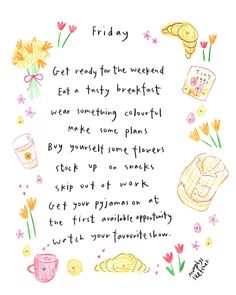 Friday
Get ready for the weekend
Eat a tasty breakfast
wear something colourful
Make some plans
Buy yourself some flowers
stock up on snacks
skip out of work
Get your pyjamas on at
the first available opportunity
watch your favourite show.